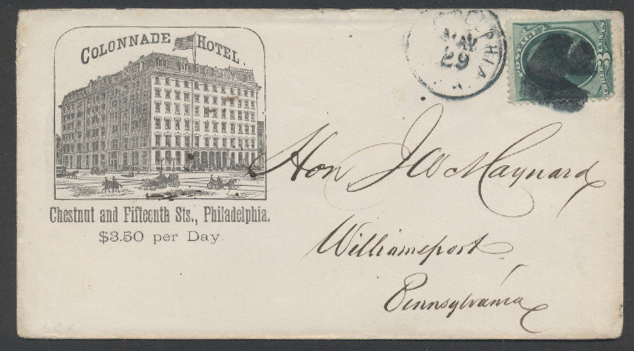 COLONNADE HOTEL.
Chestnut and Fifteenth Sts., Philadelphia.
$3.50 per Day.
MAY
29
Hon J W Maynard
Williamsport,
Pennsylvania